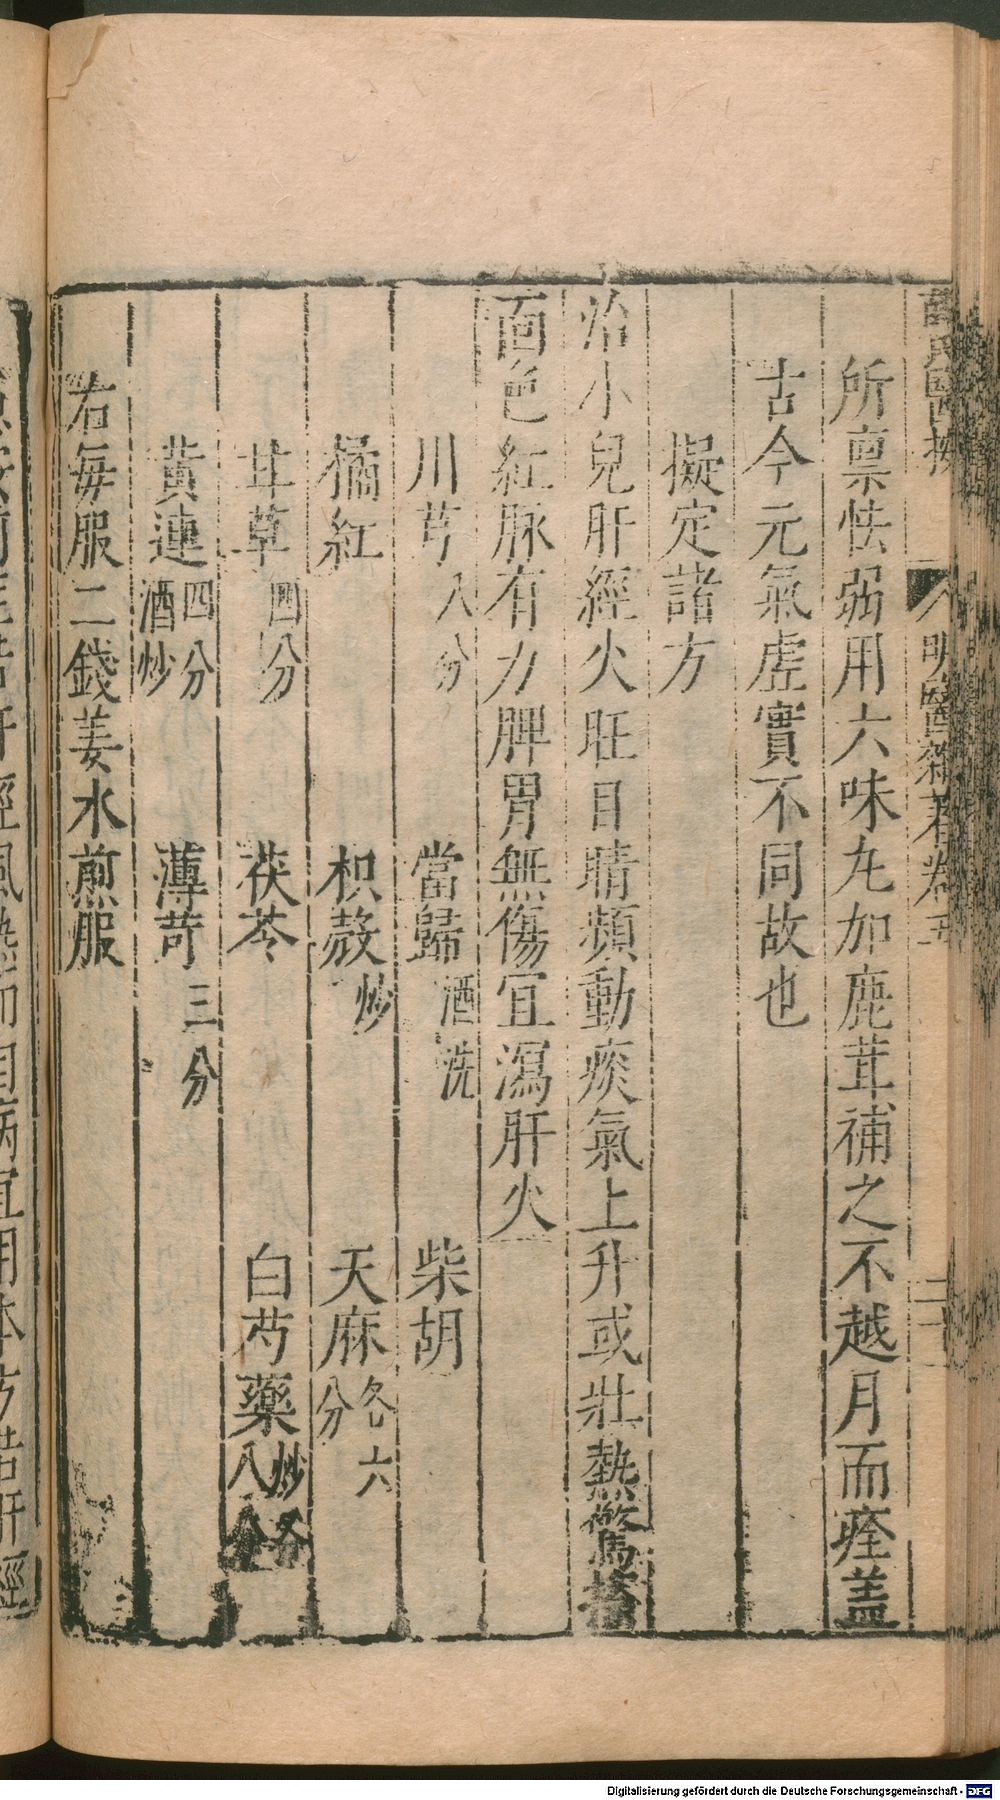 薛氏醫按 明醫雜著卷五 二十
所禀怯弱用六味丸加鹿茸補之不越月而痊盖
古今元氣虛實不同故也
擬定諸方
治小兒肝經火旺目睛頻動痰氣上升或壯熱驚搐
面色紅脉有力脾胃無傷宜瀉肝火
川芎八分 當歸酒洗 柴胡
橘紅 枳殼炒 天麻各六分
甘草四分 茯苓 白芍藥炒各八分
黃連四分酒炒 薄苛三分
右每服二錢姜水煎服
Digitalisierung gefördert durch die Deutsche Forschungsgemeinschaft - DFG